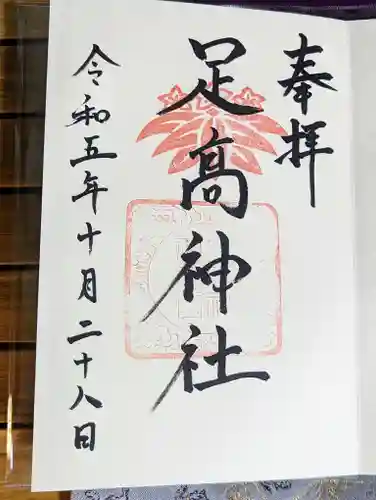 奉拝
足髙神社
令和五年十月二十八日